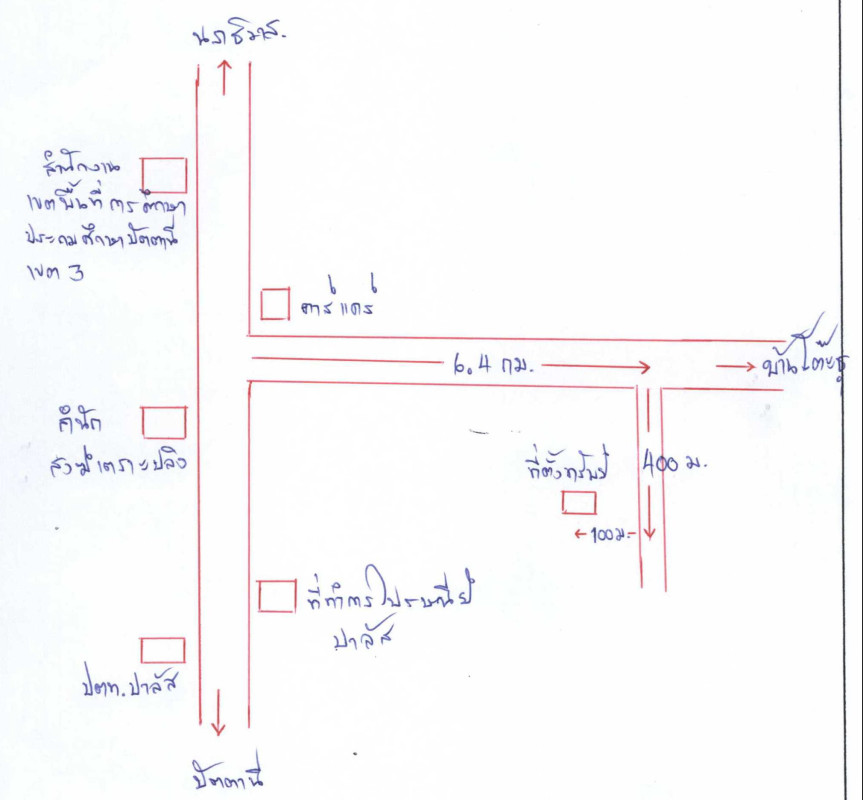 นราธิวาส.
สำนักงาน
เขตพื้นที่การศึกษา
ประถมศึกษาปัตตานี
เขต 3
คาร์แคร์
6.4 กม.
บ้านโต๊ะชู
สำนัก
สงฆ์เคราะปลิง
ที่ตั้งทรัพย์
400 ม.
100 ม.
ที่ทำการไปรษณีย์
ปาลัส
ปตท. ปาลัส
ปัตตานี